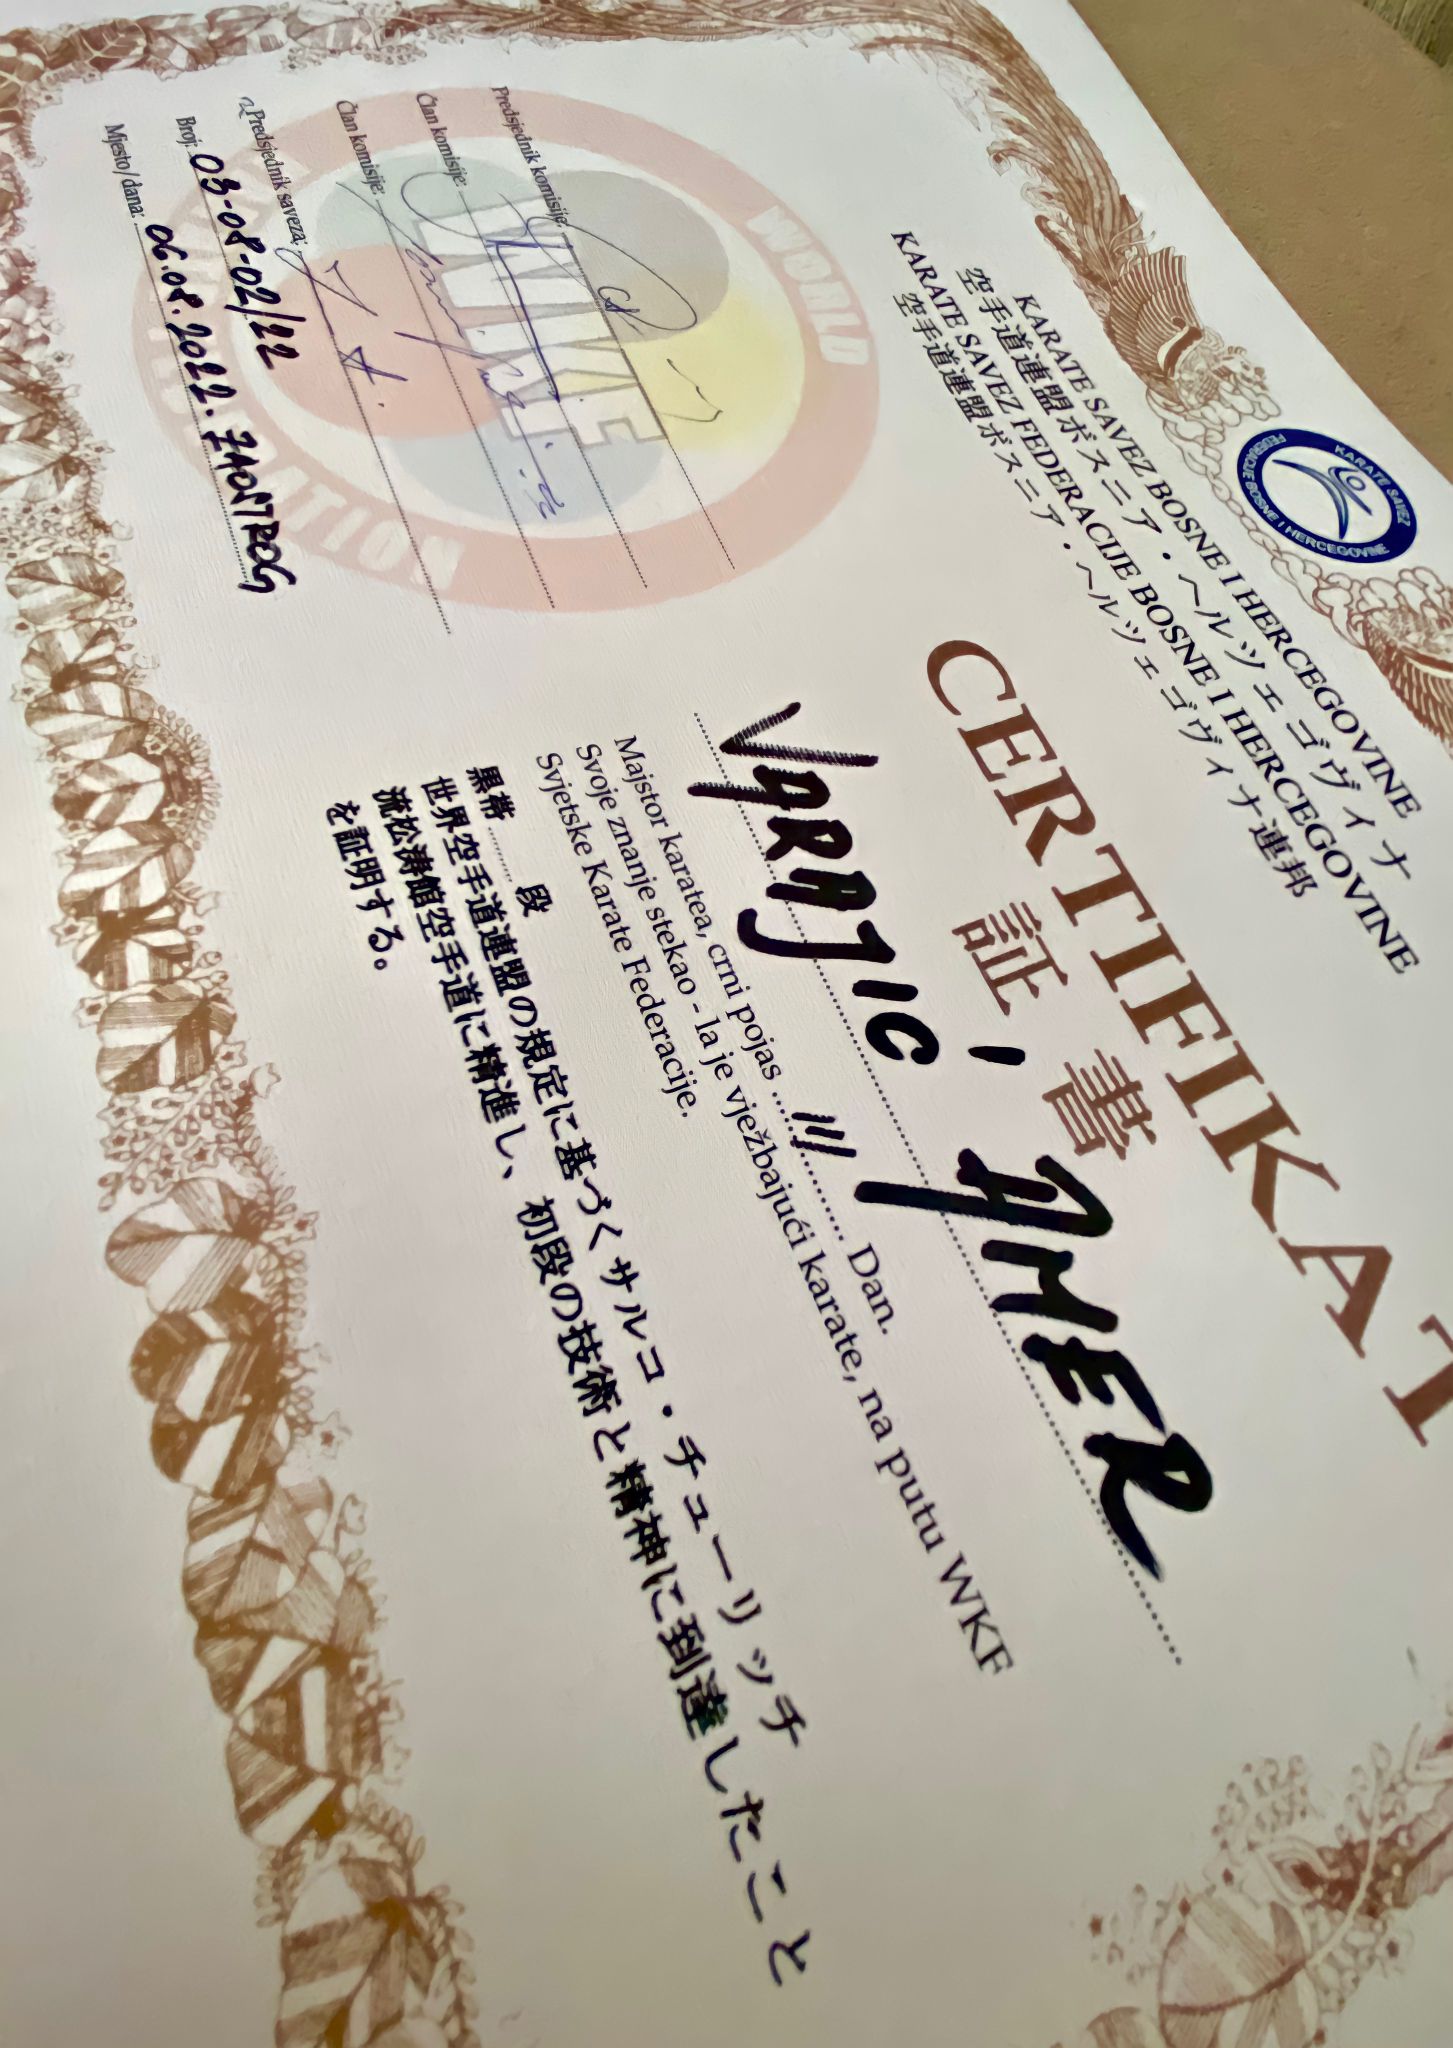 KARATE SAVEZ BOSNE I HERCEGOVINE
空手道連盟ボスニア・ヘルツェゴヴィナ
KARATE SAVEZ FEDERACIJE BOSNE I HERCEGOVINE
空手道連盟ボスニア・ヘルツェゴヴィナ連邦
KARATE SAVEZ
FEDERACIJE BOSNE I HERCEGOVINE
CERTIFIKAT
証書
VARAJIĆ AMER
Majstor karatea, crni pojas ... III ... Dan.
Svoje znanje stekao - la je vježbajući karate, na putu WKF
Svjetske Karate Federacije.
黒帯 ........ 段
世界空手道連盟の規定に基づくサルコ・チューリッチ
流松涛館空手道に精進し、初段の技術と精神に到達したこと
を証明する。
WORLD
WKF
Predsjednik komisije:
Član komisije:
Član komisije:
Predsjednik saveza:
Broj: 03-08-02/22
Mjesto/dana: 06.08.2022.